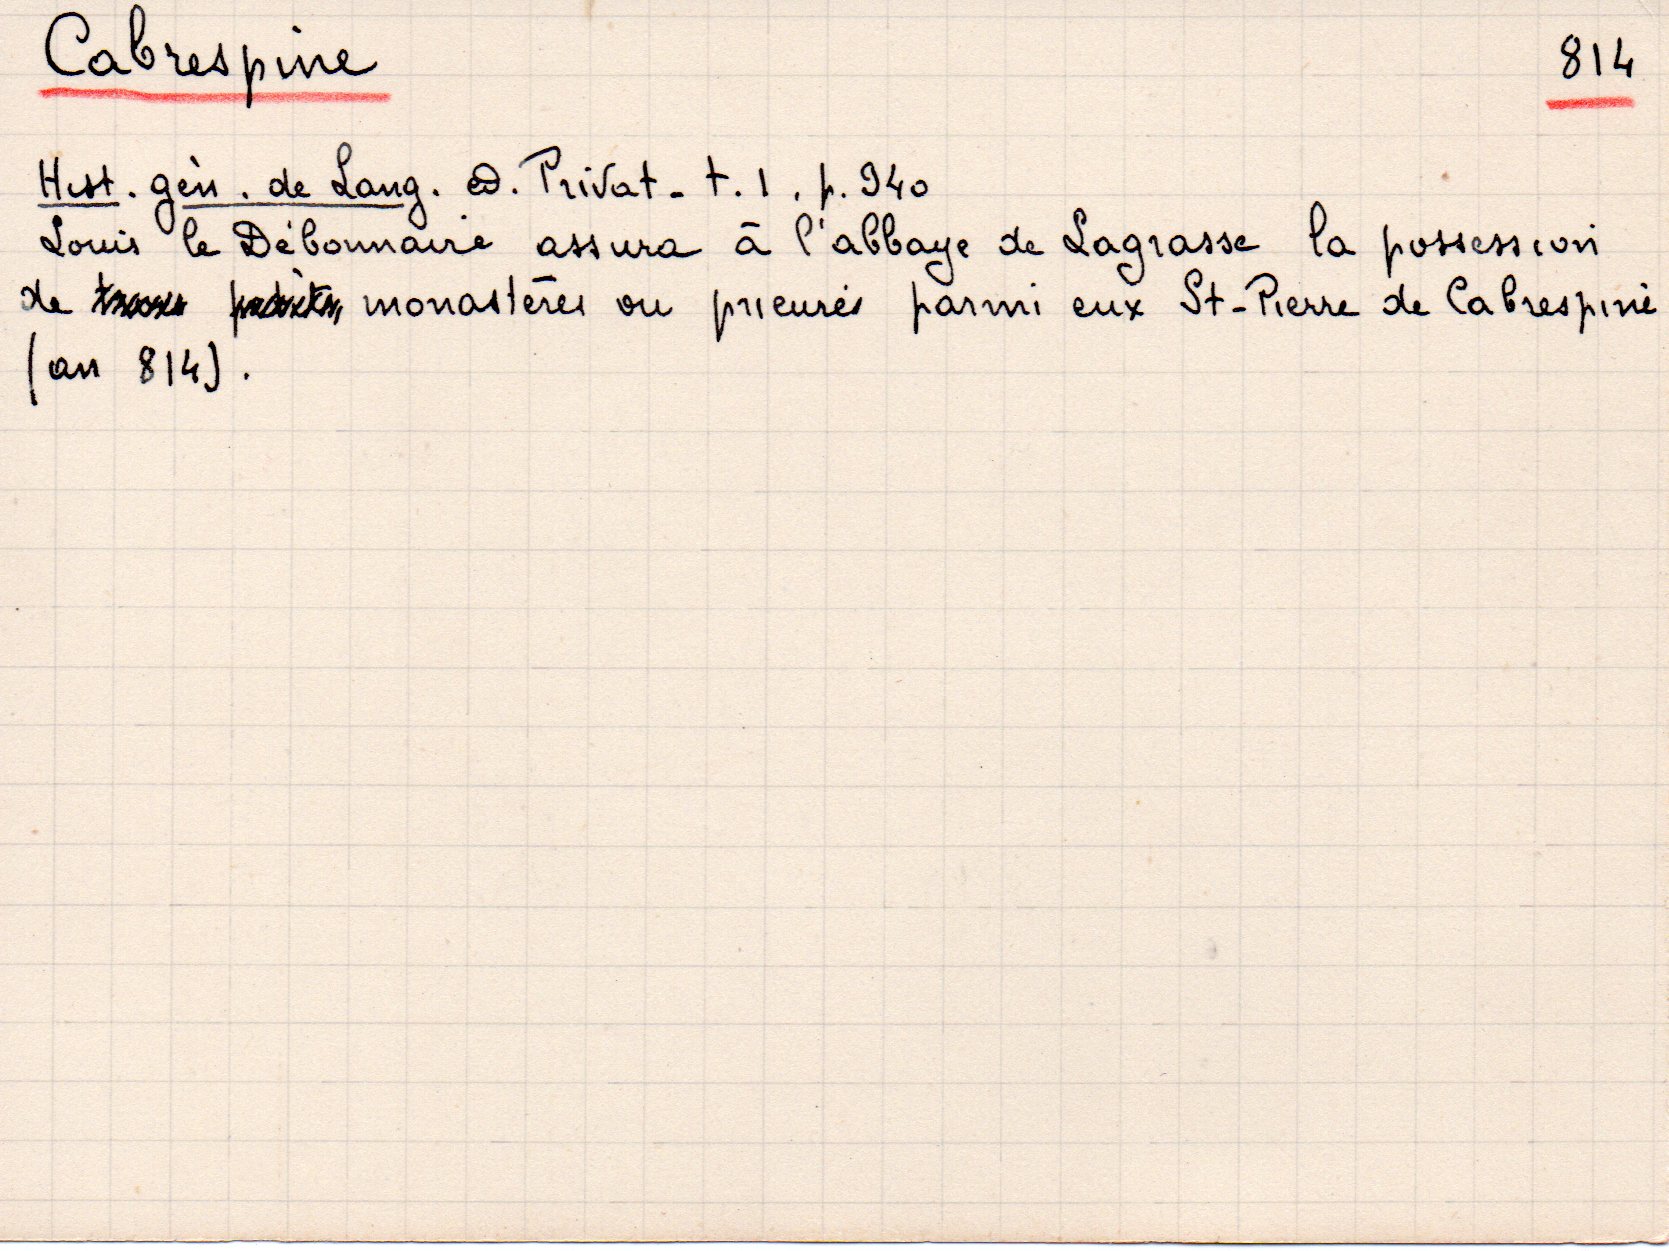 Cabrespine
814
Hist. gén. de Lang. ed. Privat - t. 1. p. 940
Louis le Débonnaire assura à l'abbaye de Lagrasse la possession
de monastères ou prieurés parmi eux St-Pierre de Cabrespine
(an 814).